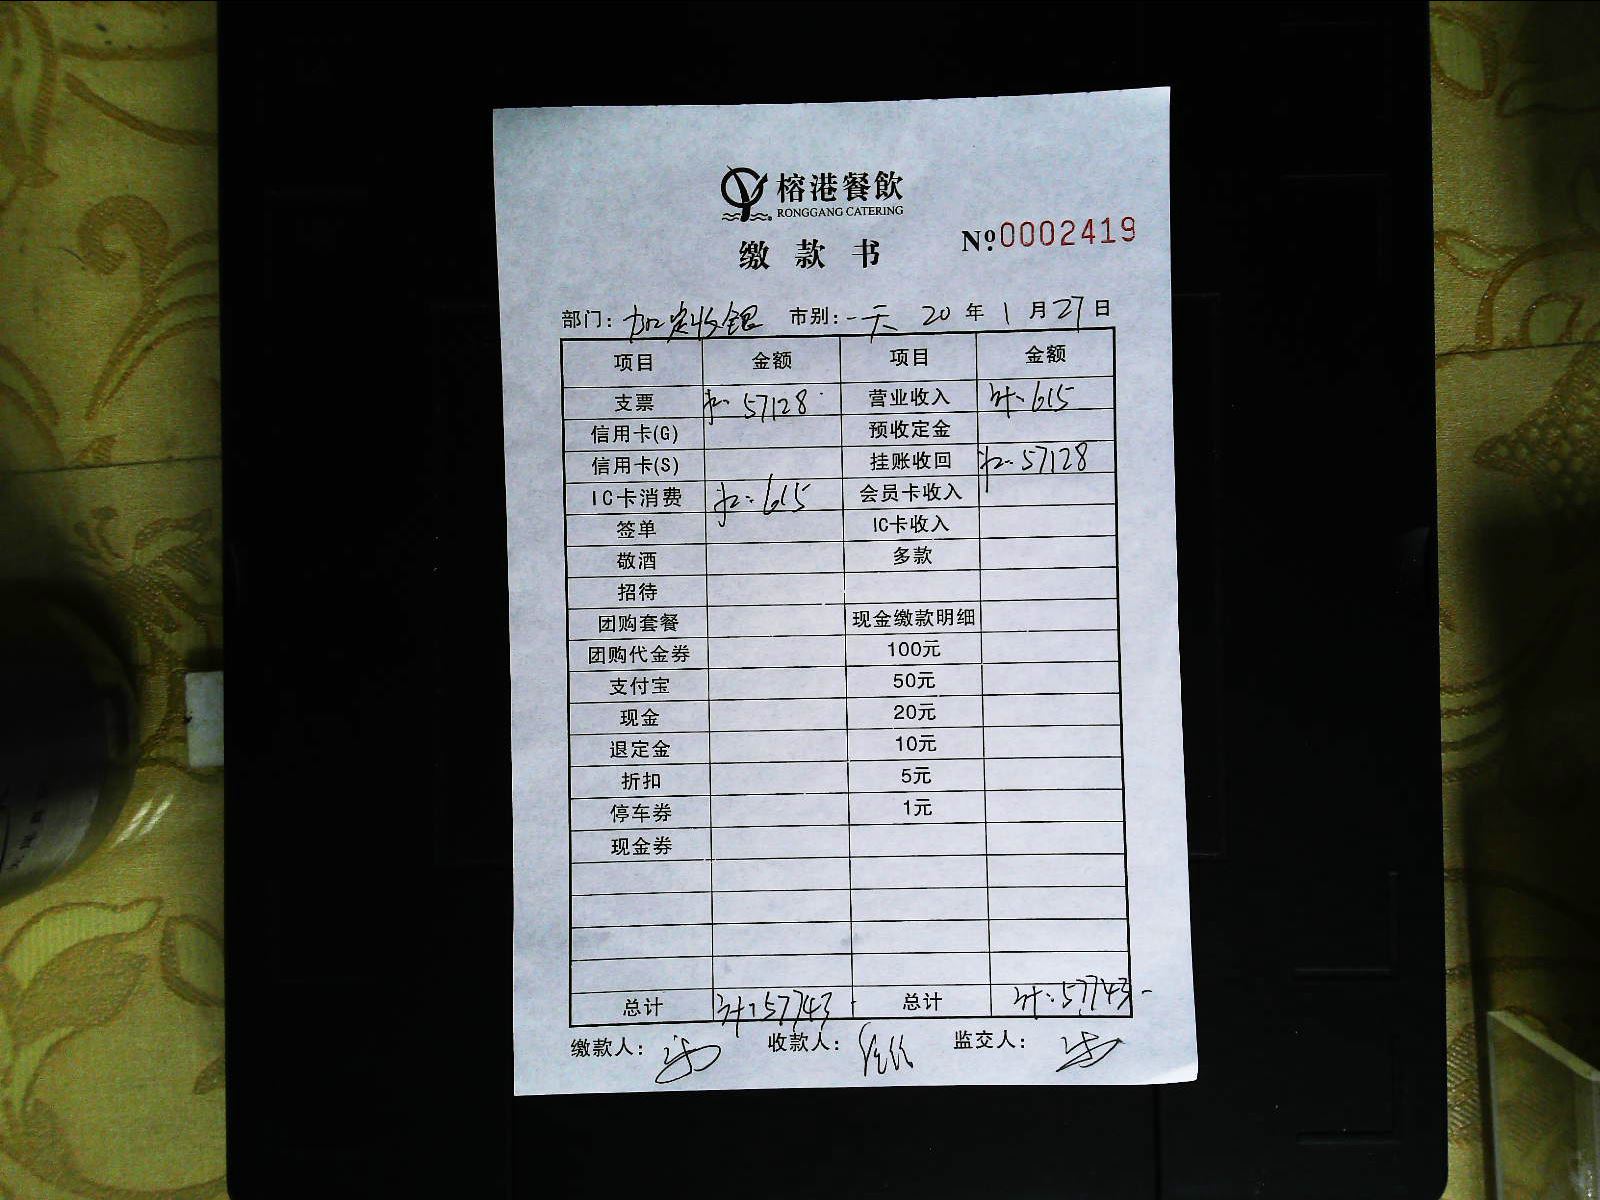 榕港餐飲
RONGGANG CATERING
缴款书 Nº0002419
部门: 加州收银 市别: 一天 20 年 1 月 27 日
项目 金额 项目 金额
支票 57128 营业收入 计: 615
信用卡(G) 预收定金
信用卡(S) 挂账收回 57128
IC卡消费 615 会员卡收入
签单 IC卡收入
敬酒 多款
招待
团购套餐 现金缴款明细
团购代金券 100元
支付宝 50元
现金 20元
退定金 10元
折扣 5元
停车券 1元
现金券
总计 计: 57743 总计 计: 57743-
缴款人: 收款人: 监交人: